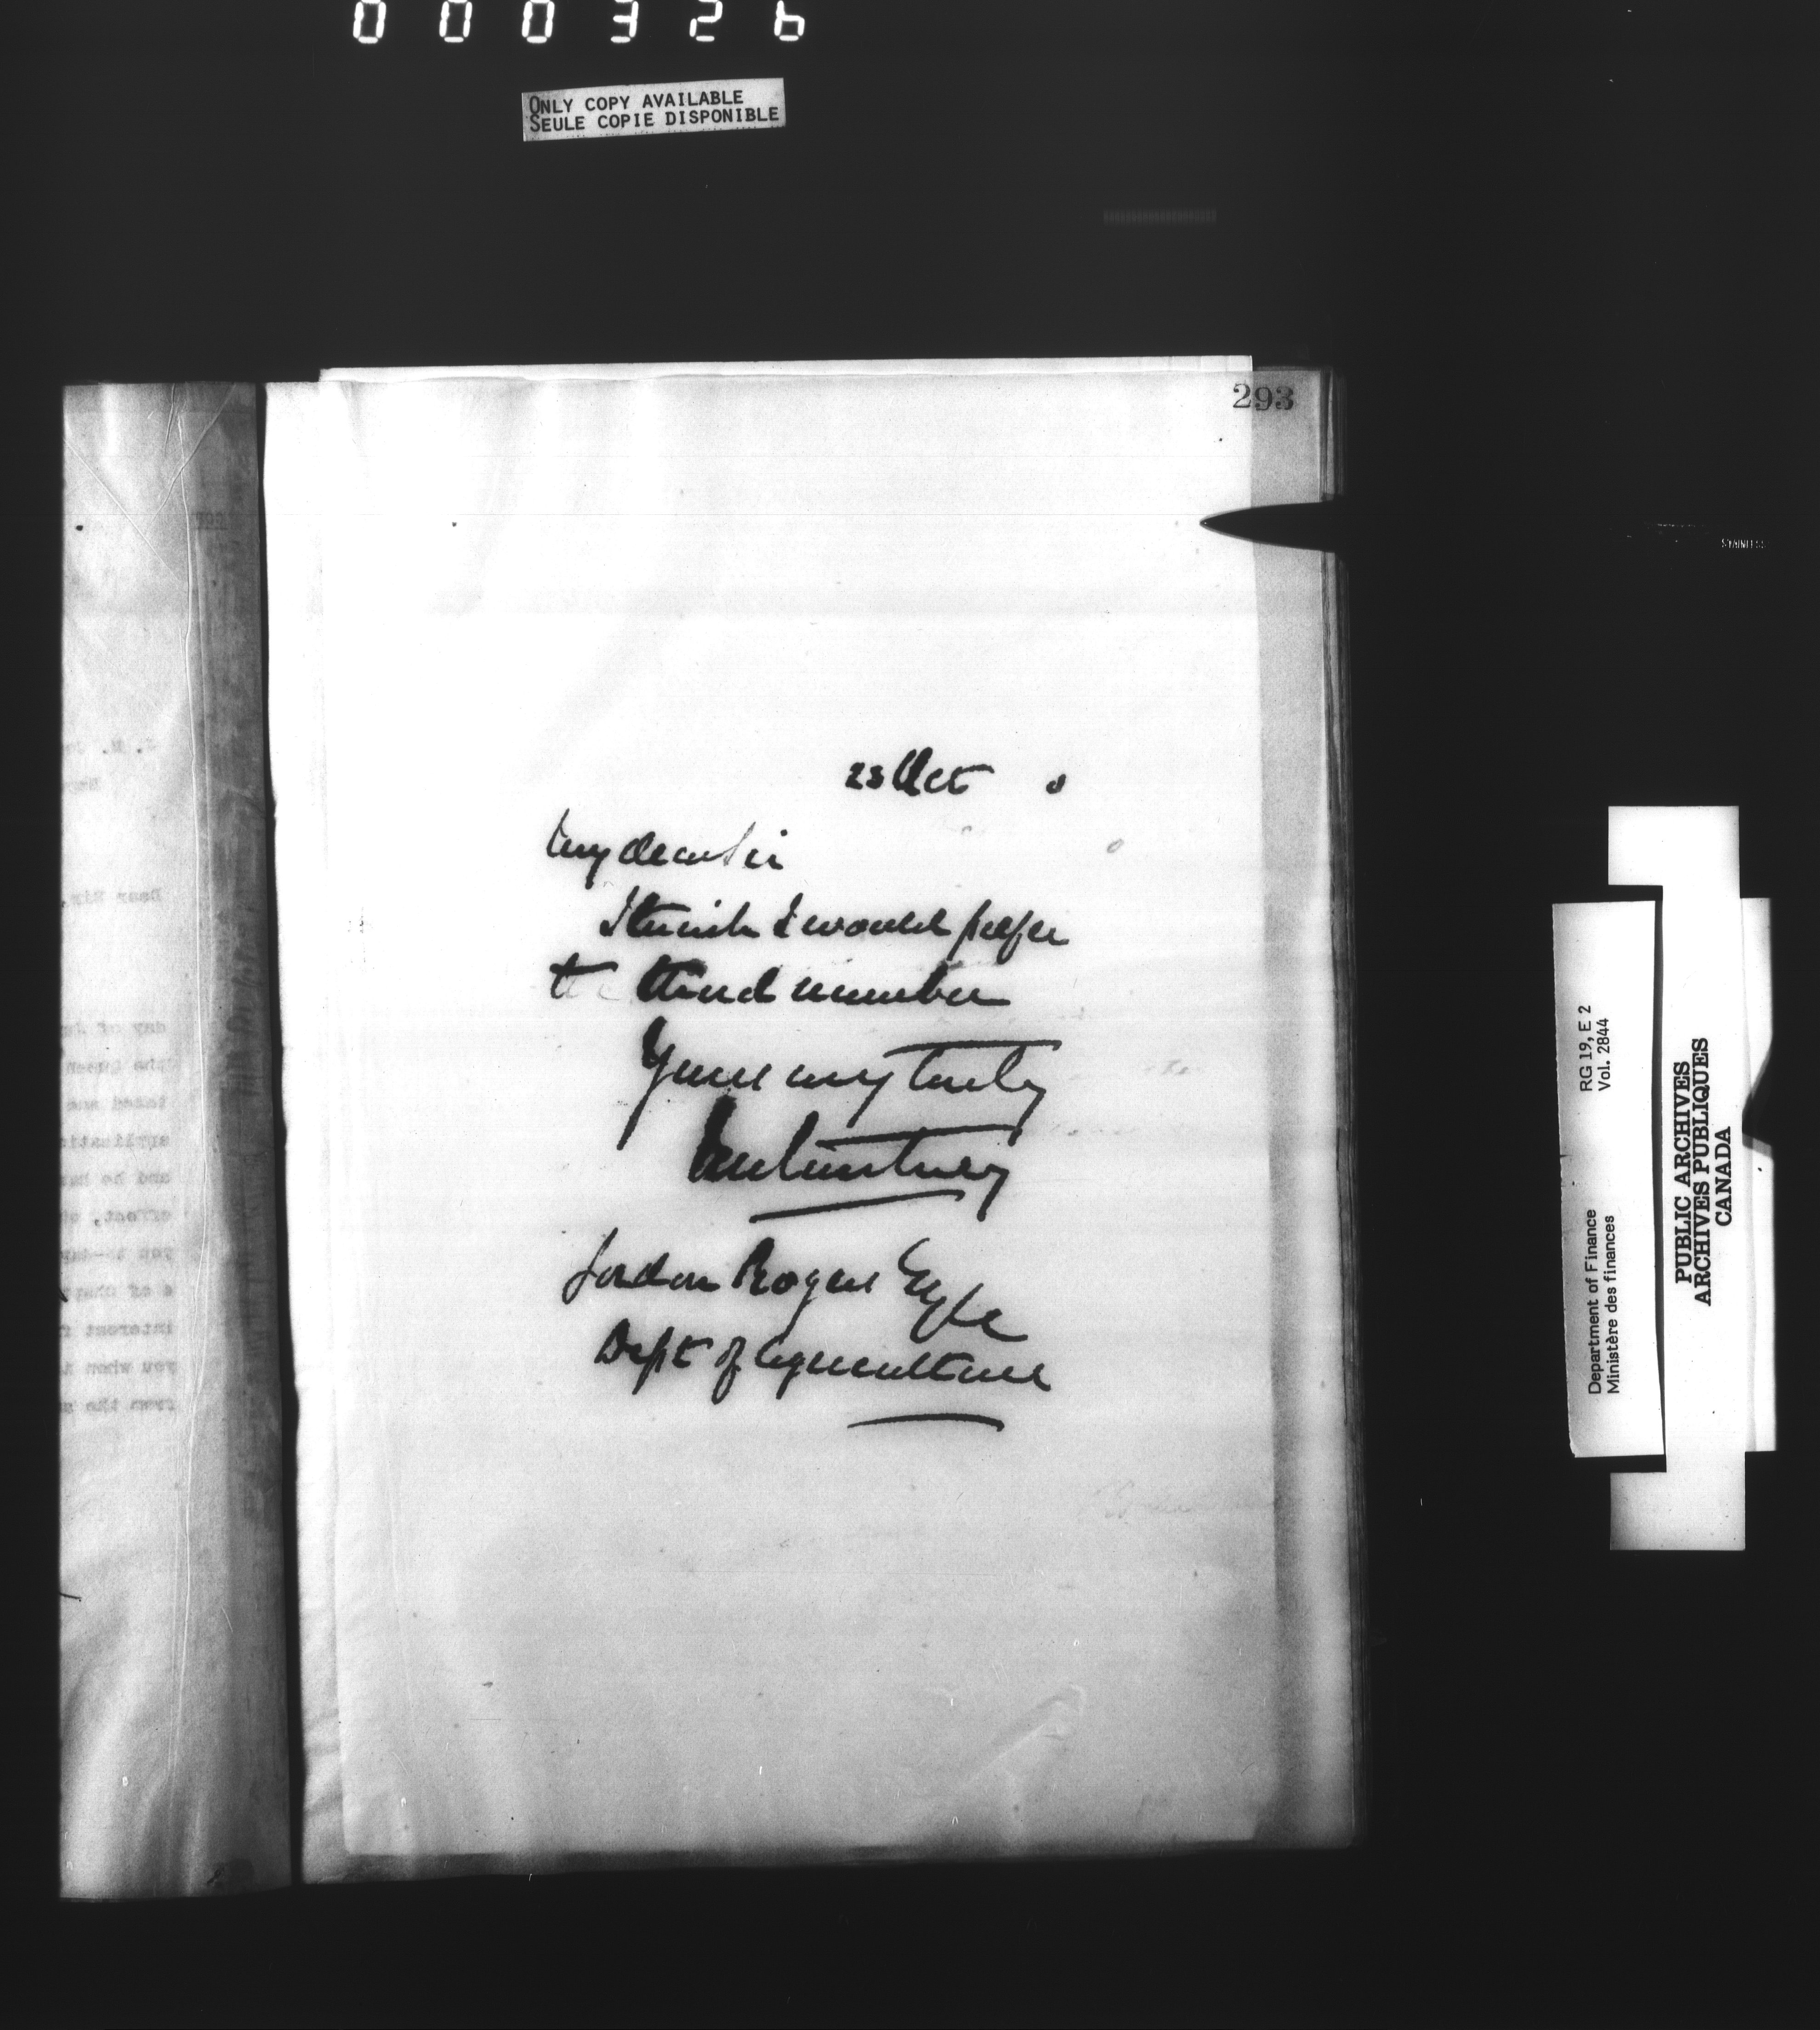 000326
ONLY COPY AVAILABLE
SEULE COPIE DISPONIBLE
293
23 Oct
My dear Sir
I think I would prefer
the third number
Yours very truly
JM Courtney
Gordon Rogers Esq
Dept of Agriculture
RG 19, E 2
Vol. 2844
Department of Finance
Ministère des finances
PUBLIC ARCHIVES
ARCHIVES PUBLIQUES
CANADA
STAINLESS